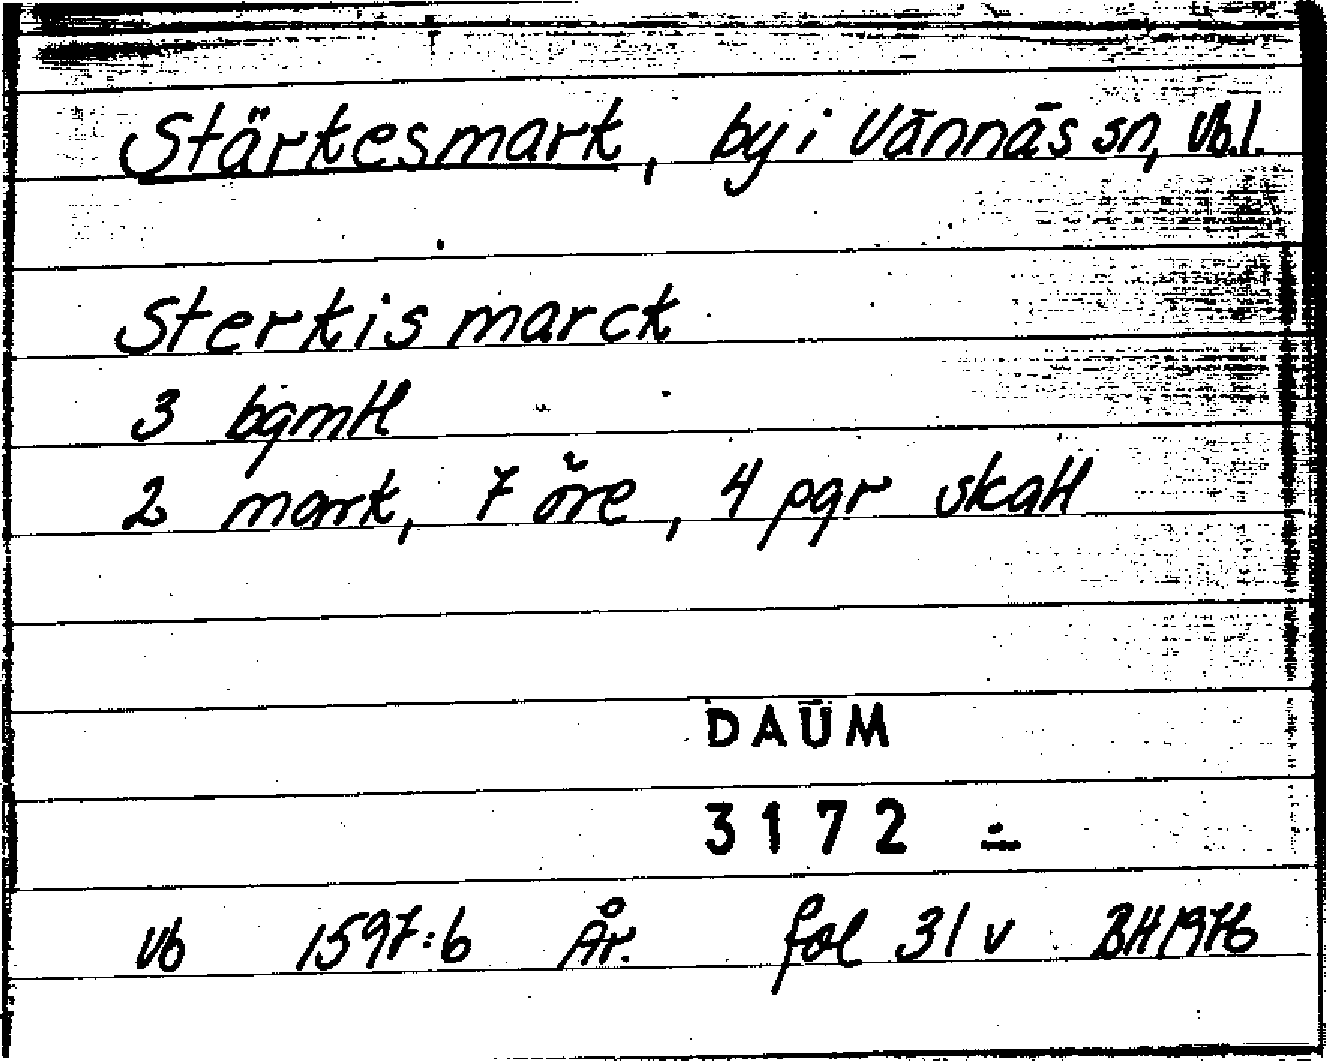 Stärkesmark, by i Vännäs sn, Vb.l.
Sterkis marck
3 bgmtl
2 mark, 7 öre, 4 pgr skatt
DAUM
3172 :-
Vb 1597:6 År. fol 31 v BH 1976